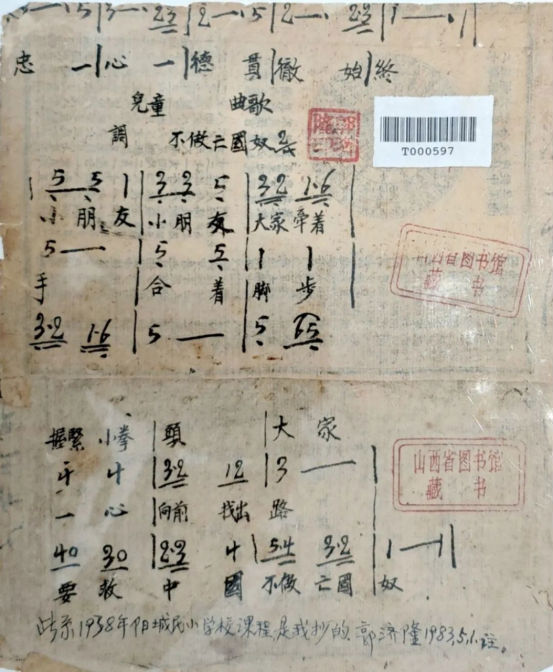 5 3— 2·3 | 2—5 | 2— 2·3 | 1—
忠 一 | 心 一 | 德 貫 | 徹 始 | 終
兒童 曲歌
調 不做亡國奴 2/4
T000597
| 5 5 1 | 3 3 5 | 3 2 1·6
小 朋 友 小 朋 友 大家 牽着
山西省图书馆
藏 书
5 — | 5 5 | 1 1 |
手 合 着 脚 步
3·2 1·6 | 5 — | 5 6 5
握緊 小拳 | 頭 | 大 家
山西省图书馆
藏 书
4 4 | 3·2 1 2 | 3 — |
一 心 向前 找出 路
4 0 3 0 | 2·3 4 | 5·4 3·2 | 1 — |
要 救 中 國 不做 亡國 奴
此系1938年阳城民小学校课程是我抄的 郭济隆1983.5.1.注。